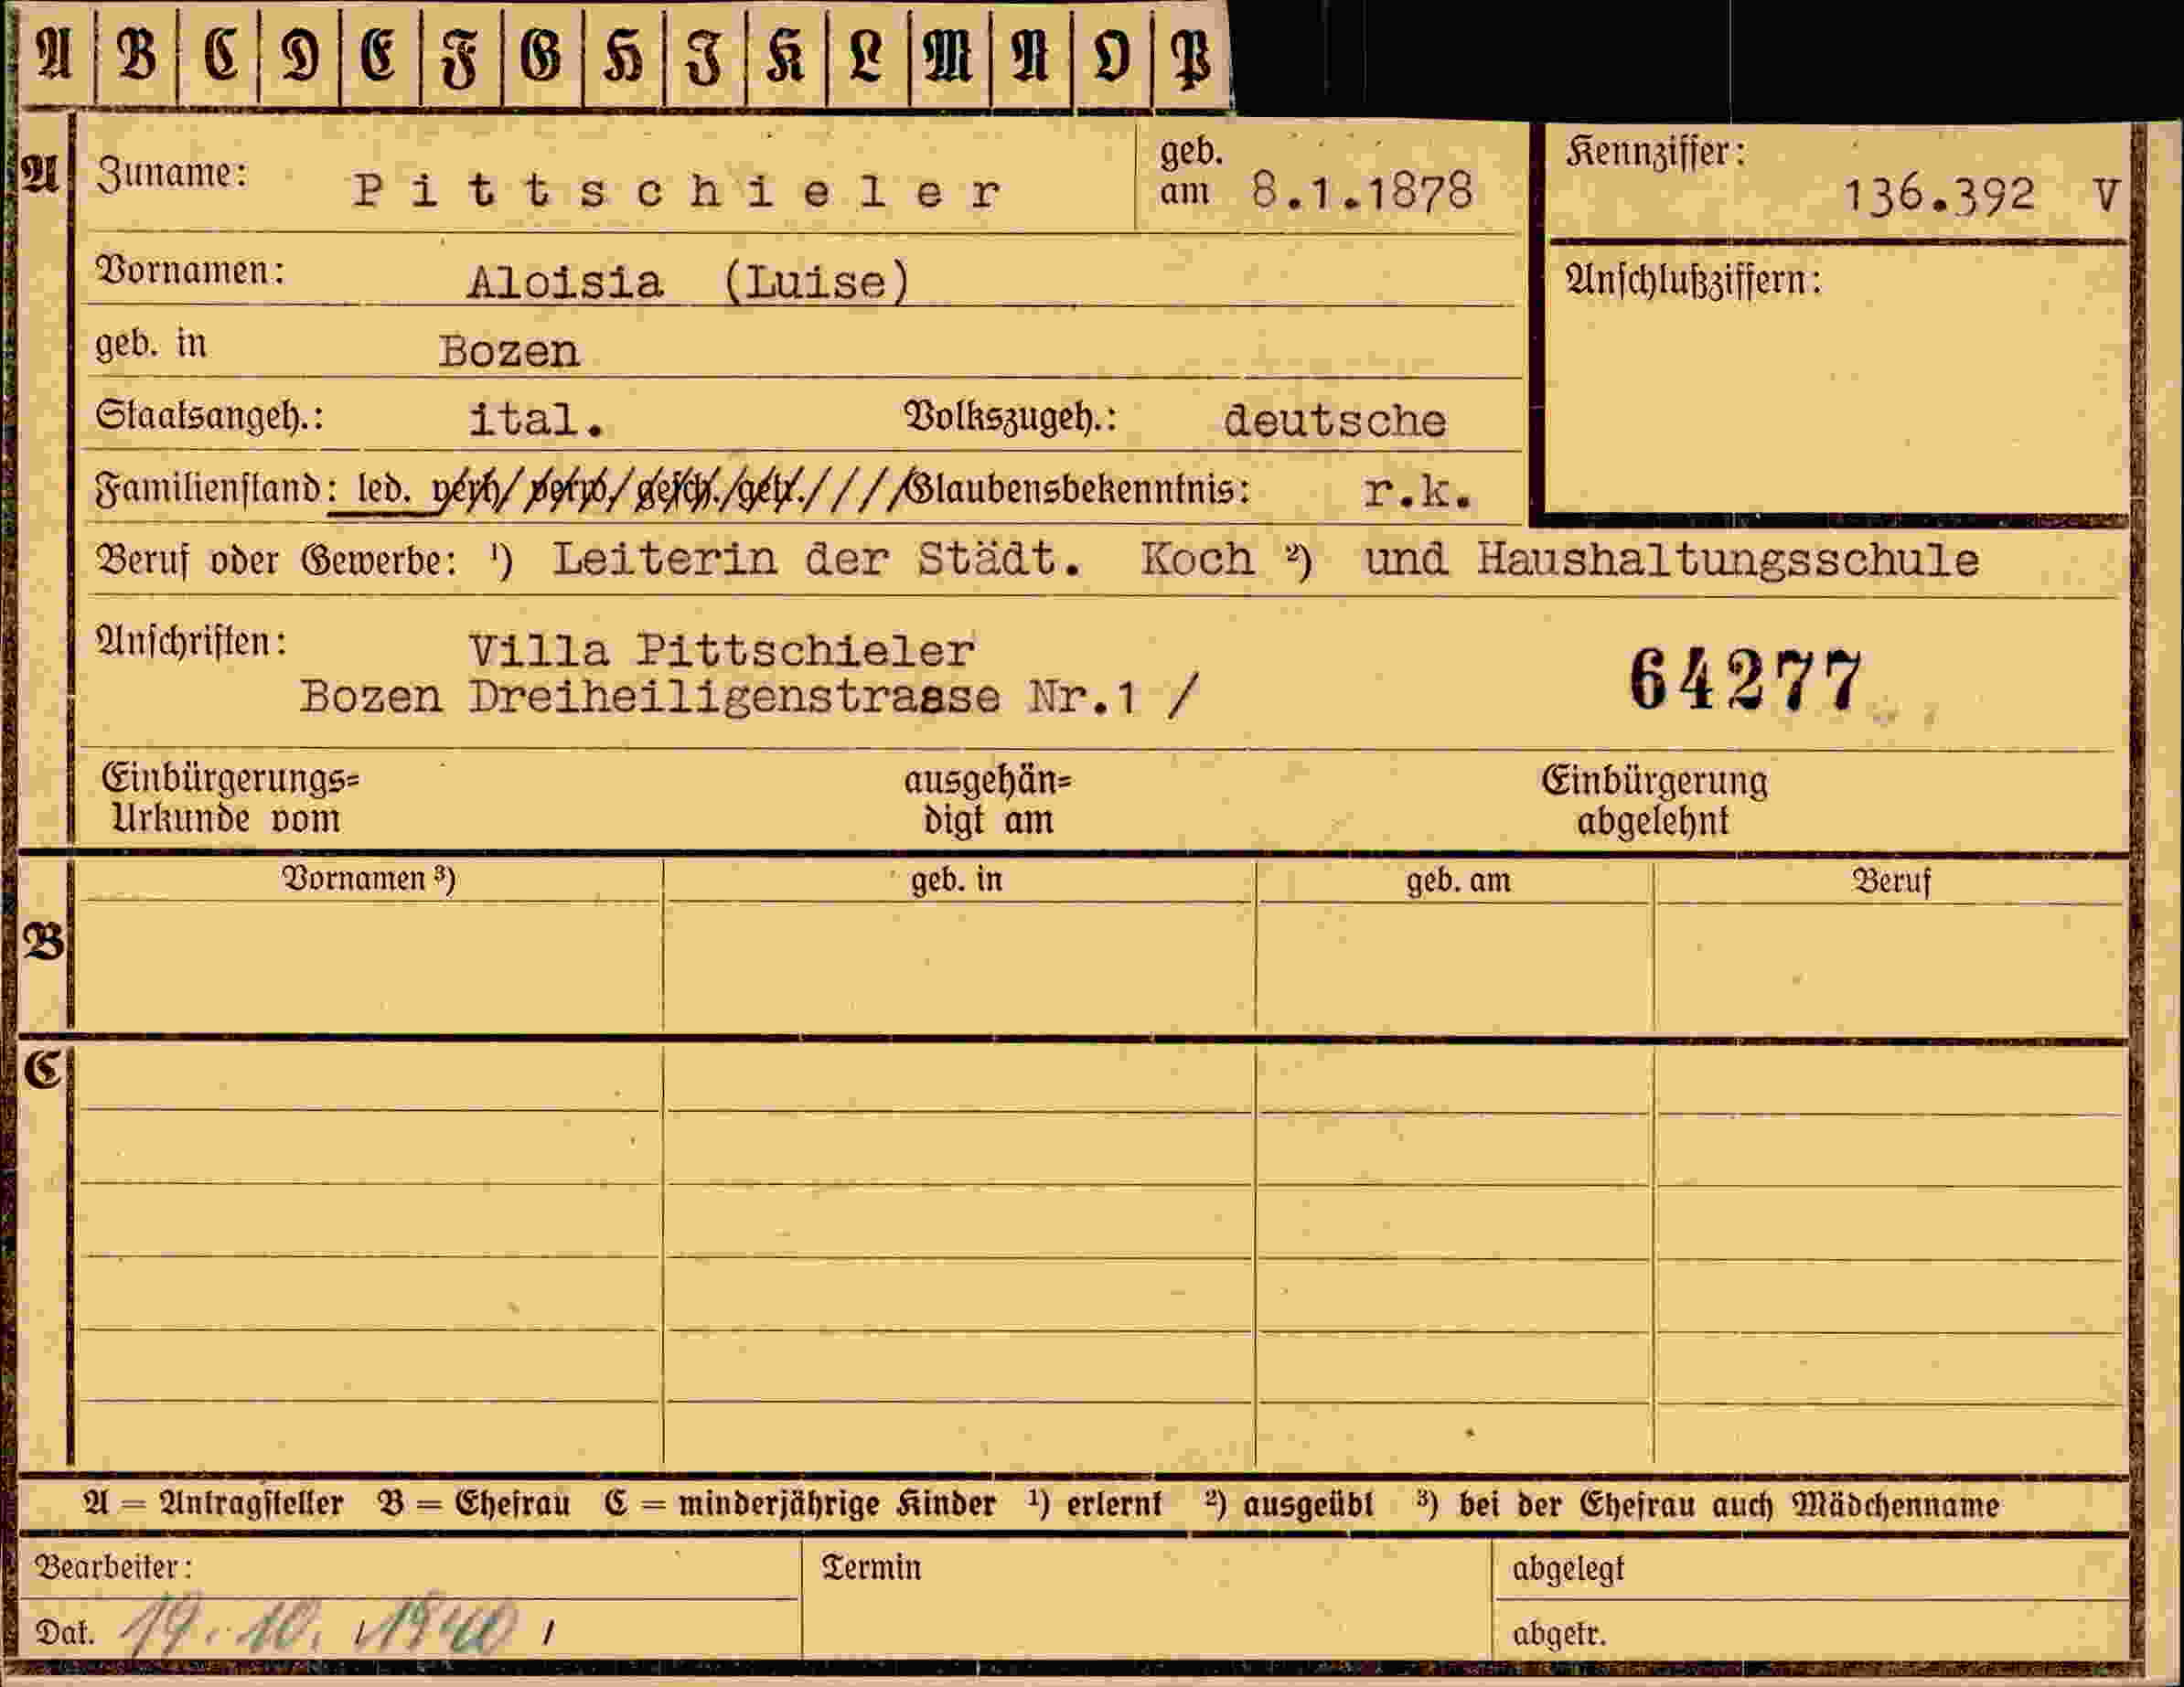 A B C D E F G H I K L M N O P
A Zuname: Pittschieler geb. am 8.1.1878 Kennziffer: 136.392 V
Vornamen: Aloisia (Luise) Anschlußziffern:
geb. in Bozen
Staatsangeh.: ital. Volkszugeh.: deutsche
Familienstand: led. verh/ verw./ gesch./getr./ / / /Glaubensbekenntnis: r.k.
Beruf oder Gewerbe: ¹) Leiterin der Städt. Koch ²) und Haushaltungsschule
Anschriften: Villa Pittschieler 64277
Bozen Dreiheiligenstrasse Nr.1 /
Einbürgerungs= ausgehän= Einbürgerung
Urkunde vom digt am abgelehnt
Vornamen ³) geb. in geb. am Beruf
B
C
A = Antragsteller B = Ehefrau C = minderjährige Kinder ¹) erlernt ²) ausgeübt ³) bei der Ehefrau auch Mädchenname
Bearbeiter: Termin abgelegt
Dat. 19.10.1940 abgetr.